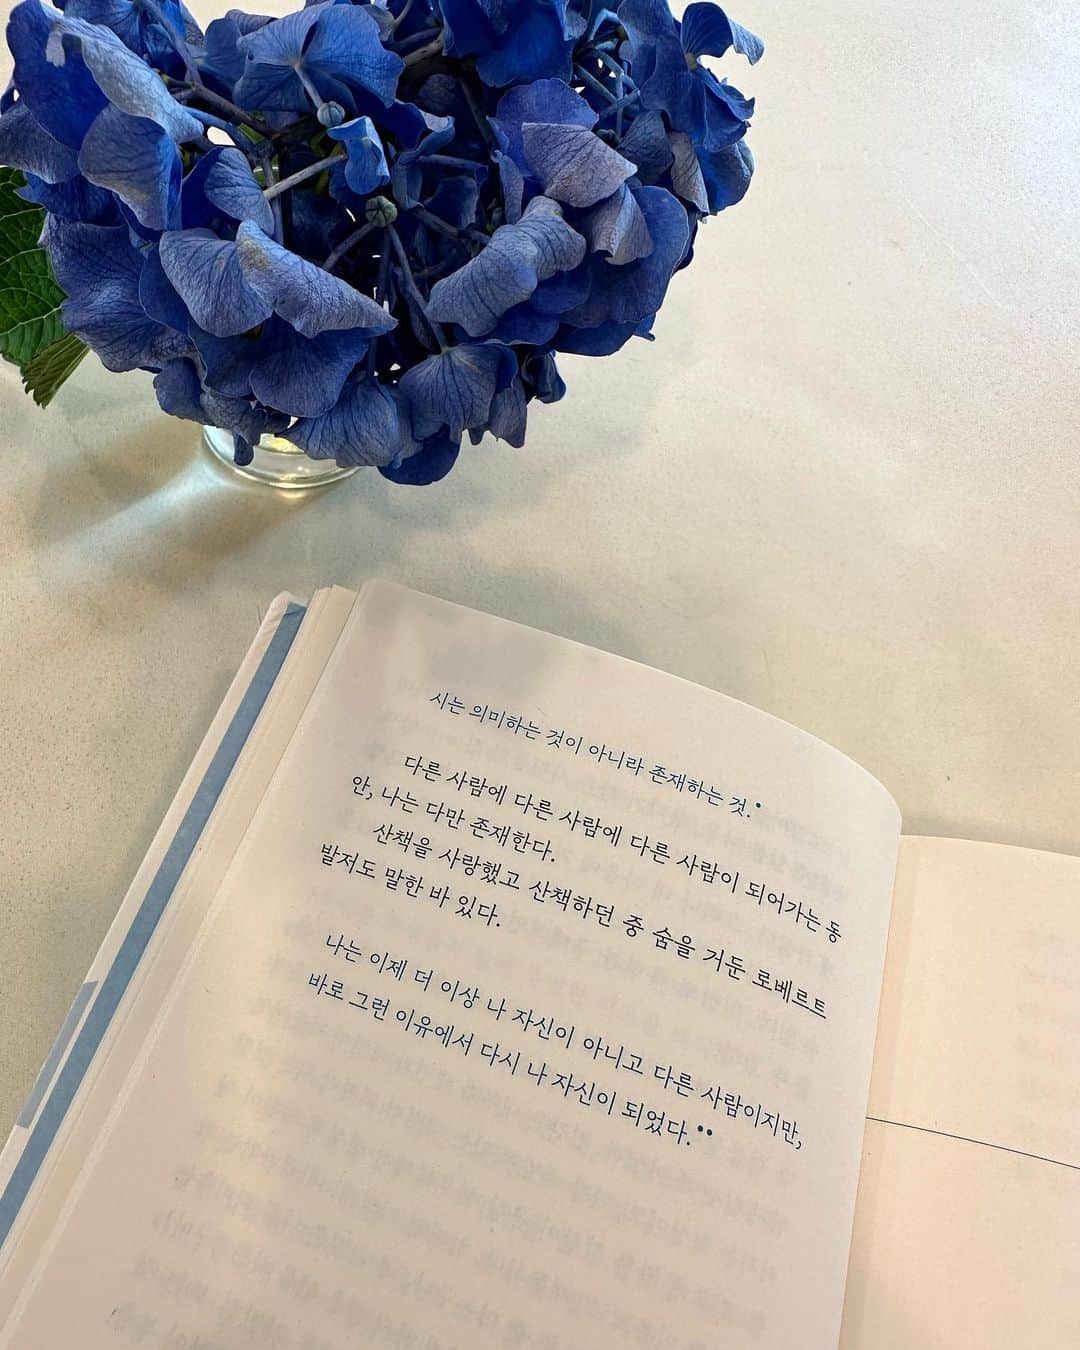 시는 의미하는 것이 아니라 존재하는 것.•
다른 사람에 다른 사람에 다른 사람이 되어가는 동
안, 나는 다만 존재한다.
산책을 사랑했고 산책하던 중 숨을 거둔 로베르트
발저도 말한 바 있다.
나는 이제 더 이상 나 자신이 아니고 다른 사람이지만,
바로 그런 이유에서 다시 나 자신이 되었다.••